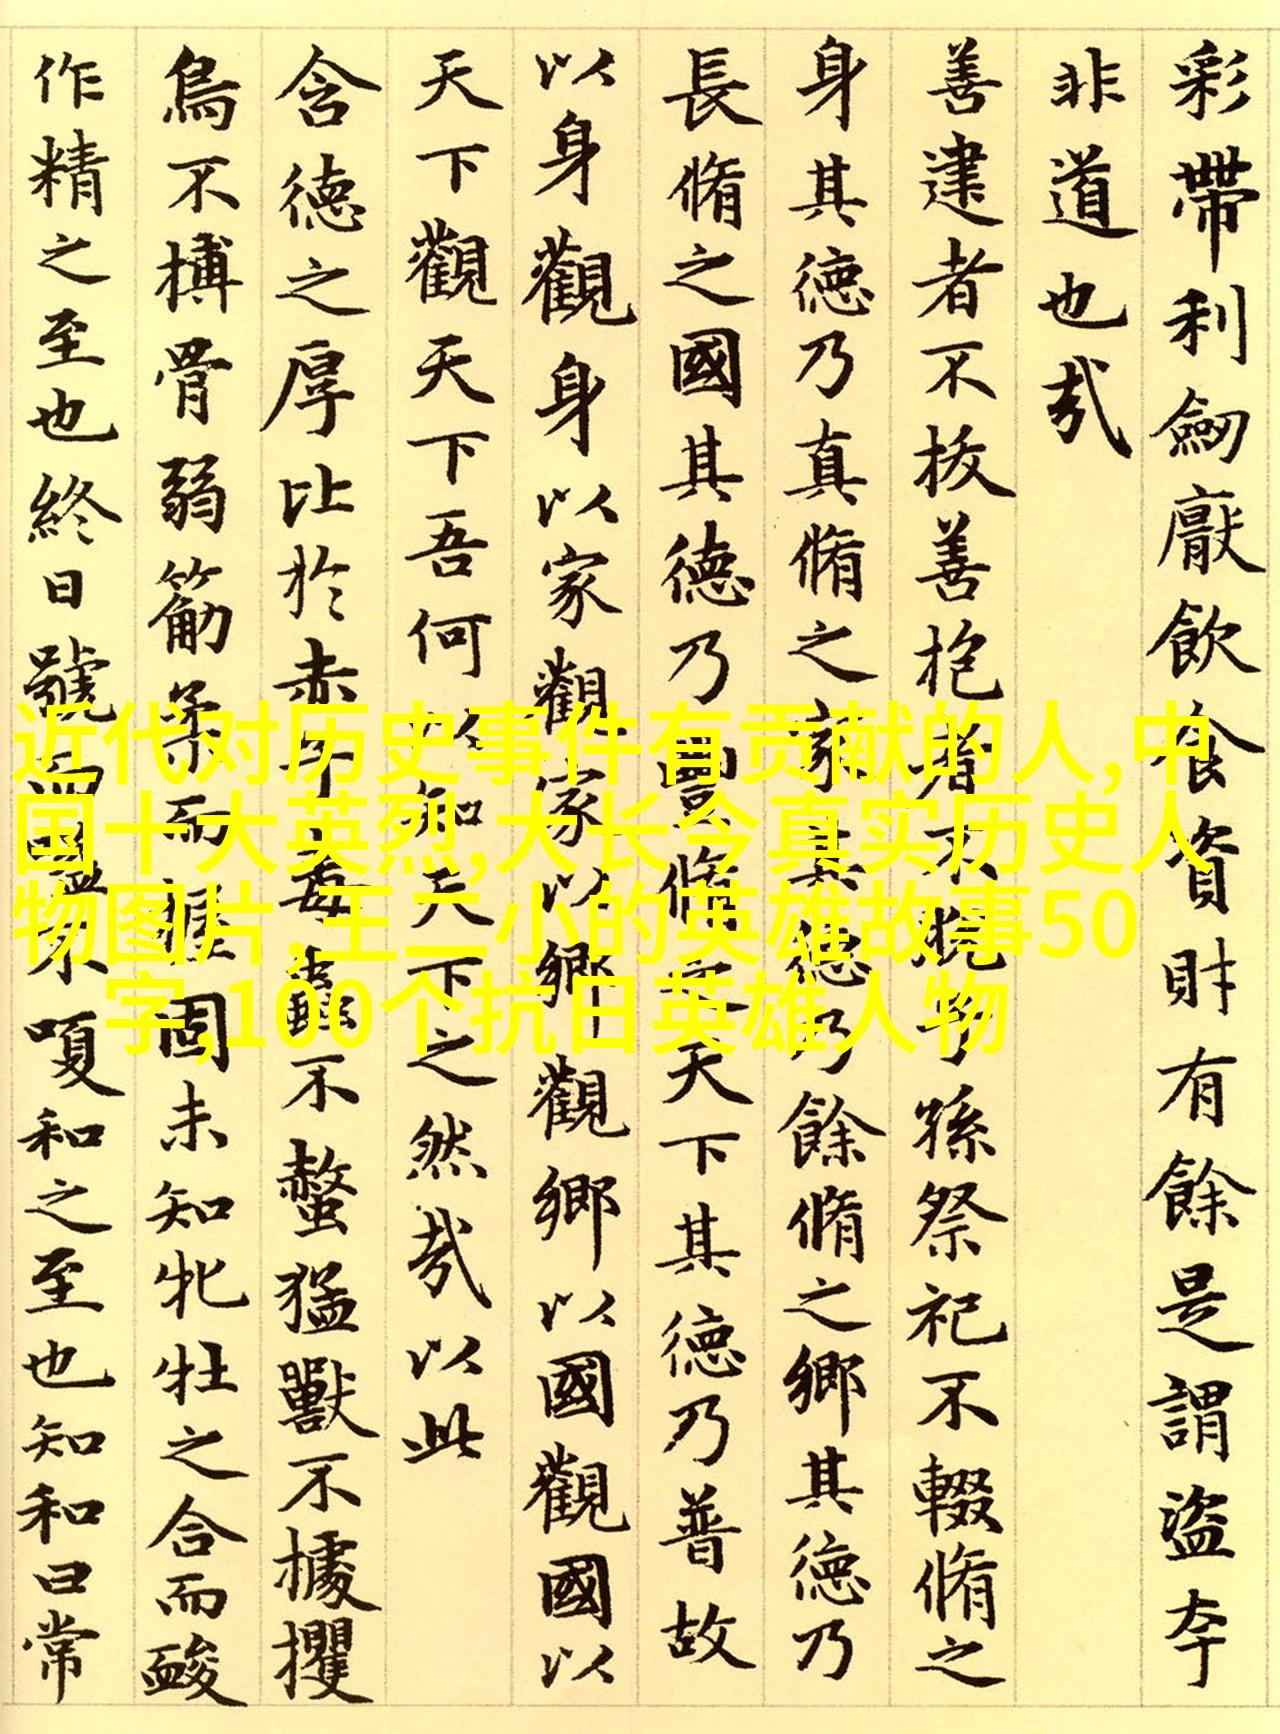 彩帶利劒厭飲食資財有餘是謂盜夸
非道也哉
善建者不拔善抱者不脫子孫祭祀不輟脩之
身其德乃真脩之家其德乃餘脩之鄉其德乃
長脩之國其德乃豐脩之天下其德乃普故
以身觀身以家觀家以鄉觀鄉以國觀國以
天下觀天下吾何以知天下之然哉以此
含德之厚比於赤子毒蟲不螫猛獸不據攫
鳥不搏骨弱筋柔而握固未知牝牡之合而酸
作精之至也終日號而嗌不嗄和之至也知和曰常
近代对历史事件有贡献的人,中
国十大英烈,大长今真实历史人
物图片,王二小的英雄故事50
字,100个抗日英雄人物